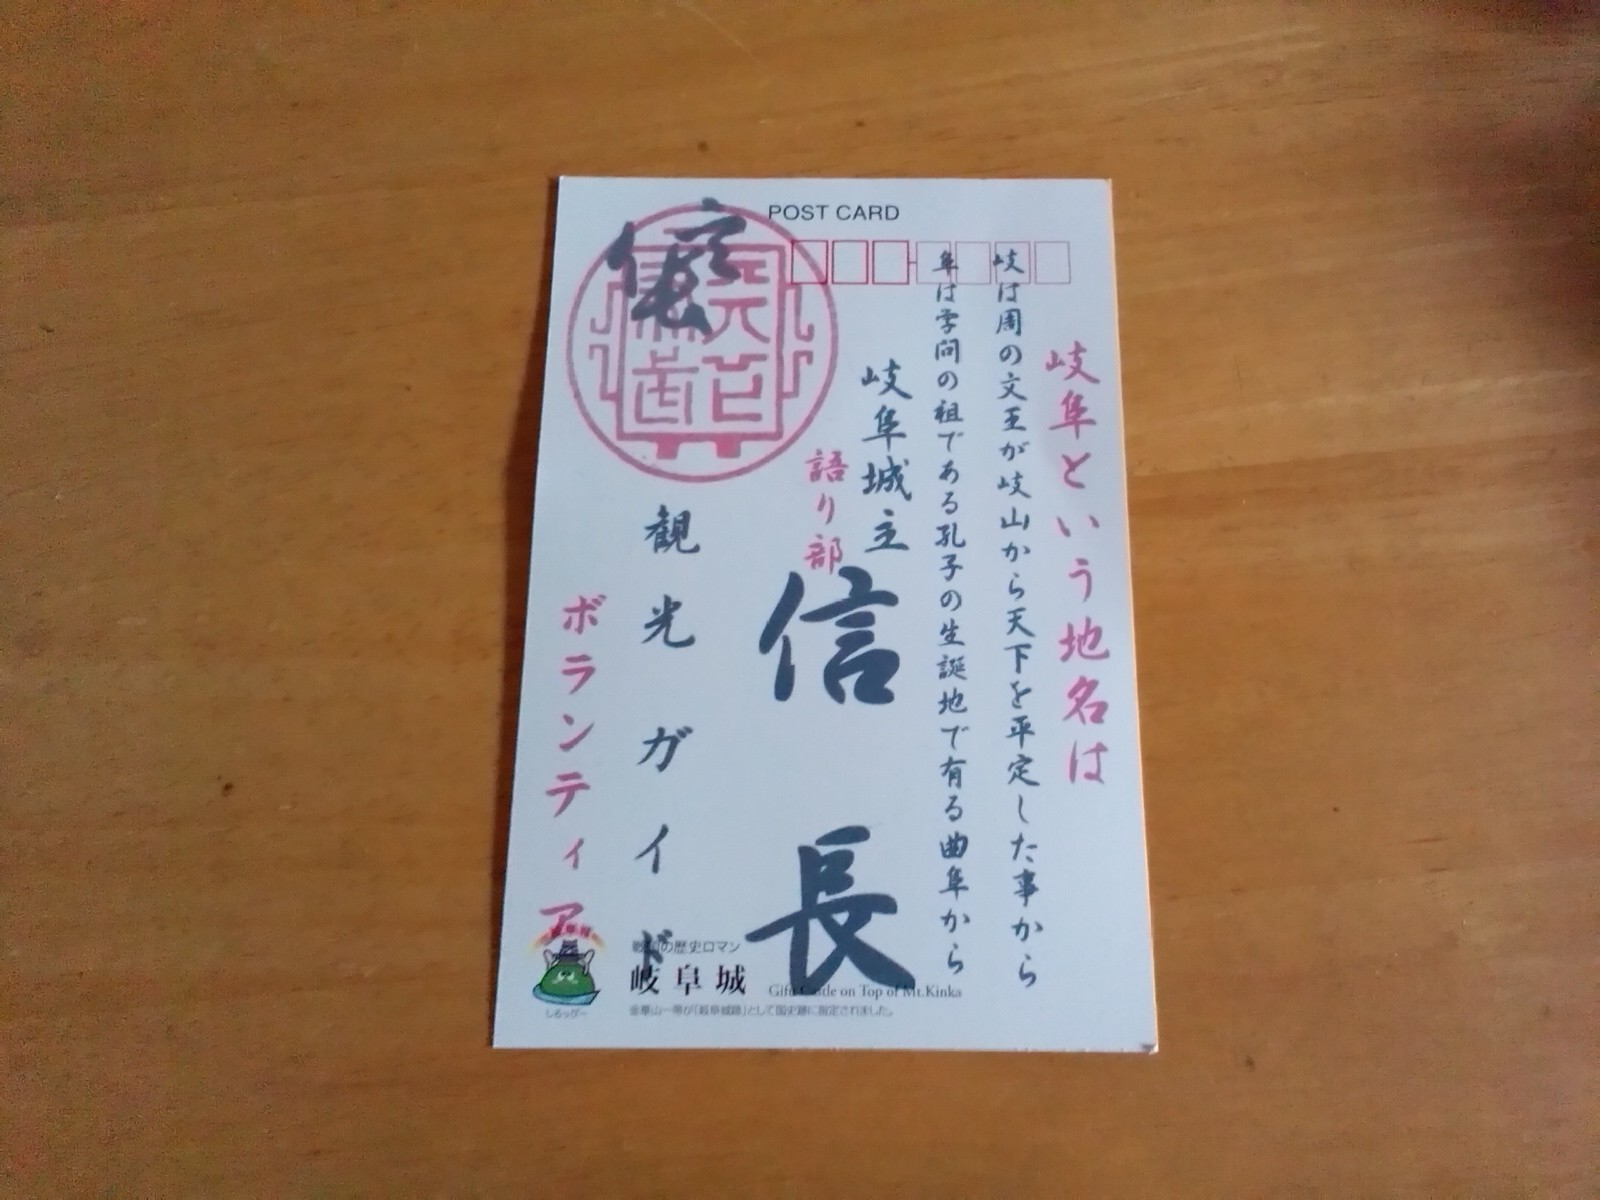 POST CARD
岐阜という地名は
岐は周の文王が岐山から天下を平定した事から
阜は学問の祖である孔子の生誕地で有る曲阜から
岐阜城主
信長
語り部
観光ガイド
ボランティア
戦国の歴史ロマン
岐阜城
Gifu Castle on Top of Mt.Kinka
金華山一帯が「岐阜城跡」として国史跡に指定されました。
しろっぷー